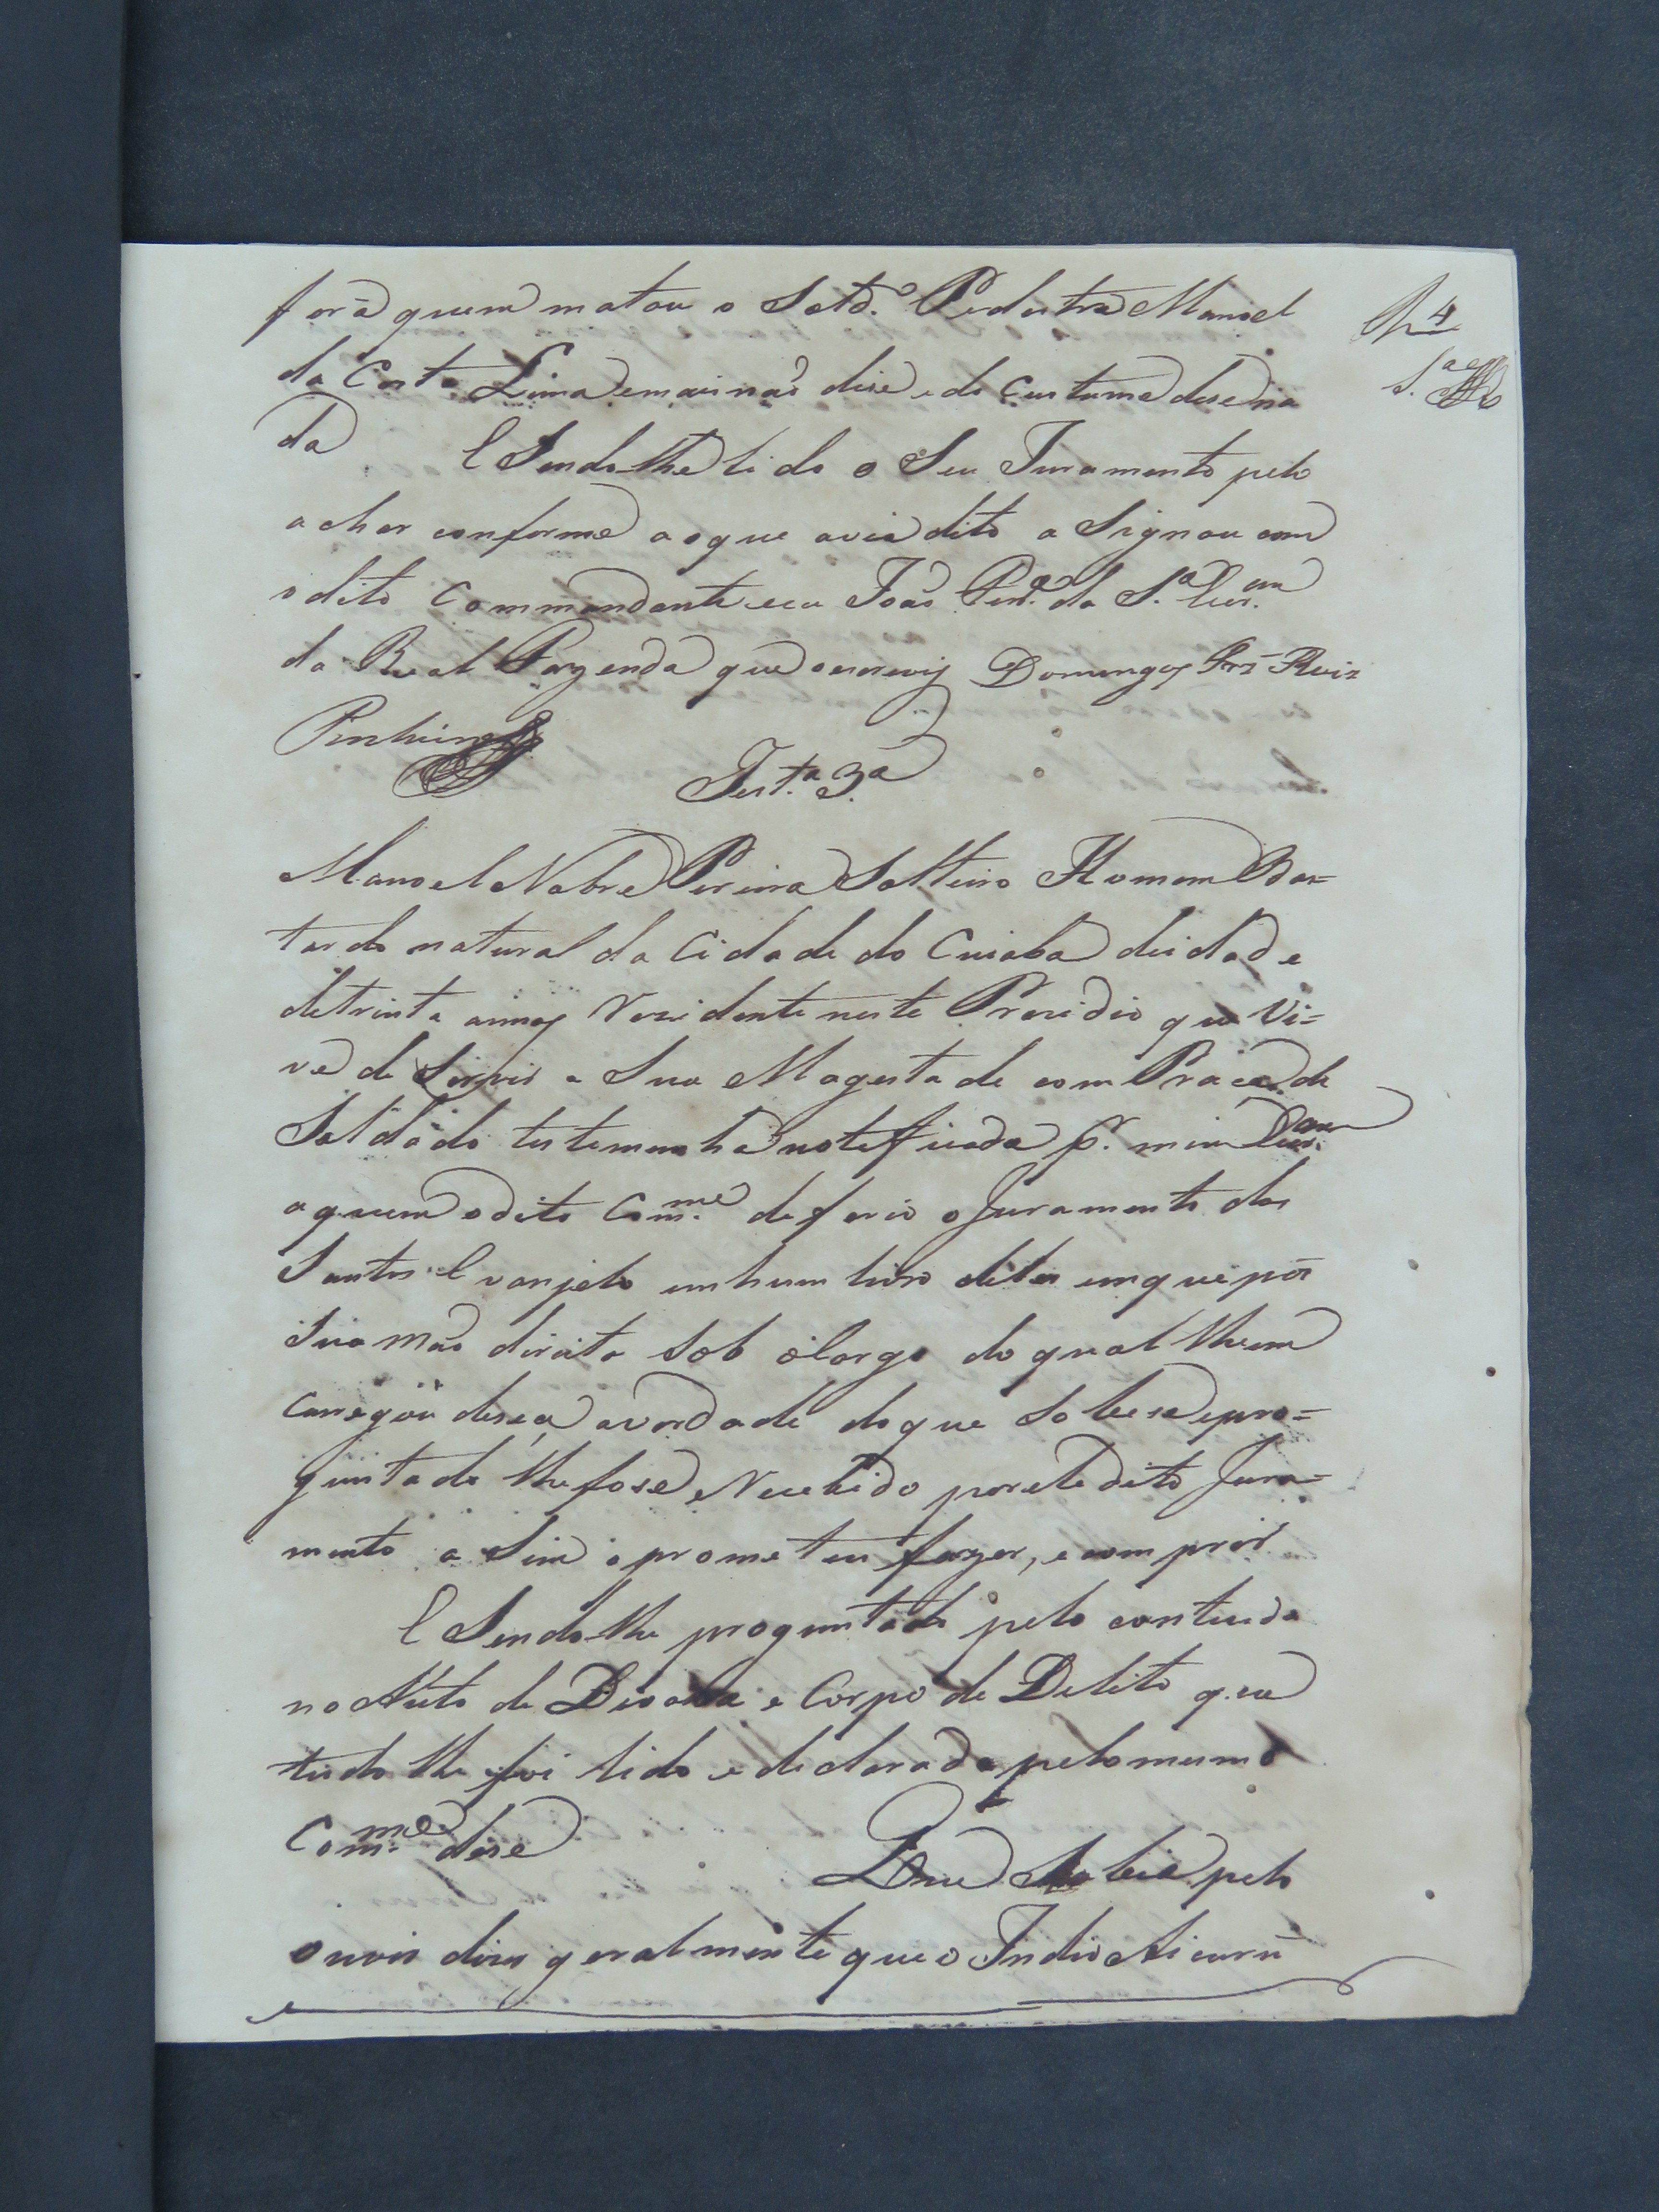 forã quem matou o Sold.º Pedestre Manoel
da Costa Lima emais naõ dise, e do Custume dise na
da E Sendo lhe lido o Seu Juramento pelo
achar conforme aoque avia dito a Signou com
o dito Commandante eeu Joaõ Per.ª da S.ª Escr.am
da Real Fazenda que oescrevy Domingos Frz Ruiz
Pinheiro
Test.ª 3.ª
Manoel Nobre Pereira Solteiro Homem Bas=
tardo natural da Cidade do Cuiaba deidade
detrinta annos Rezidente neste Prezidio que Vi=
ve de Servir a Sua Magestade com Praça de
Soldado testemunha notificada p.r mim Escr.am
aquem odito Com.me deferio oJuramento dos
Santos Evanjelo emhum livro delles emque pos
Sua maõ direita Sob Cargo do qual lhe em
carregou disese averdade doque Soubese epro=
guntado lhe fose, eRecebido porele dito Jura=
mento a Sim o prometeu fazer, e comprir
E Sendo lhe proguntado pelo conteudo
no Auto de Devaça e Corpo de Delito que
tudo lhe foi lido e declarado pelo mesmo
Com.me dise Que Sabia pelo
ouvir dizer geralmente que o Indio Aicurú
4
S.ª